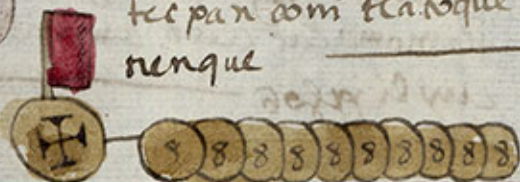 tecpan oom tlatoque
nenque
8 8 8 8 8 8 8 8 8 8